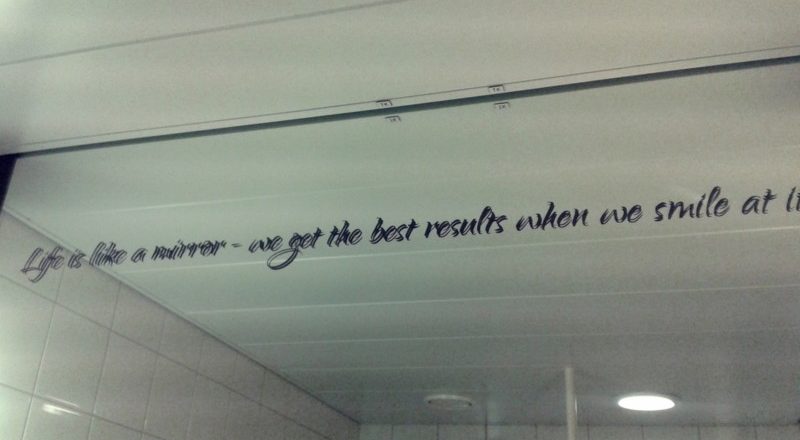 Life is like a mirror - we get the best results when we smile at it